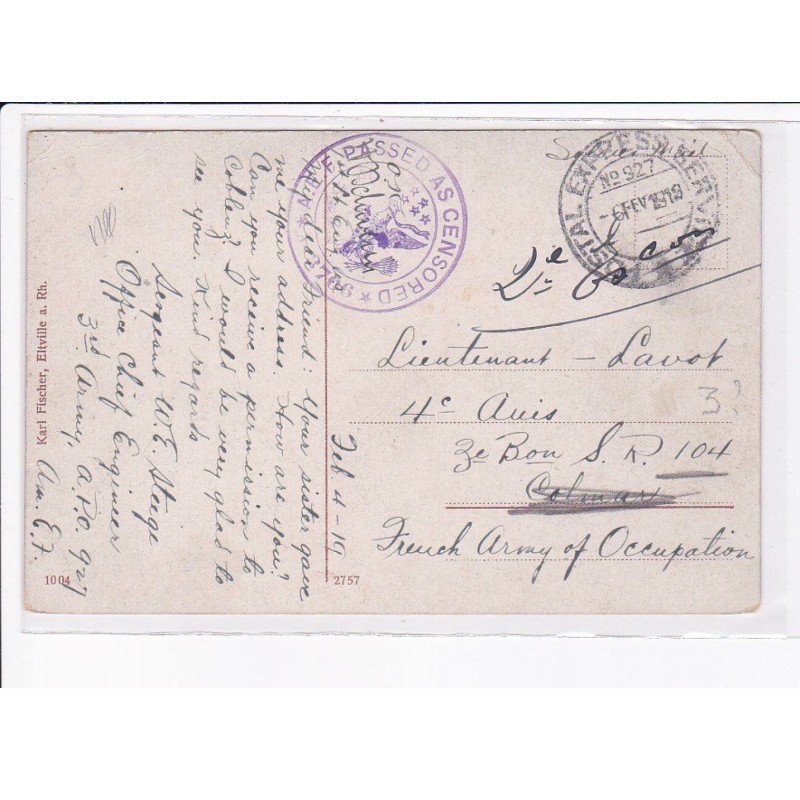 Soldier's Mail
POSTAL EXPRESS SERVICE
No 927
FEV 1919
A.E.F. PASSED AS CENSORED
OK
2e
Lieutenant - Lavot
4e Avis
3e Bon S. R. 104
Colmar
French Army of Occupation
3
Feb 4-19
My dear Friend: Your sister gave
me your address. How are you?
Can you receive a permission to
Coblenz? I would be very glad to
see you. Kind regards
Sergeant W.E. Steige
Office Chief Engineer
3rd Army, A.P.O. 927
Am. E.F.
Karl Fischer, Eltville a. Rh.
1004
2757